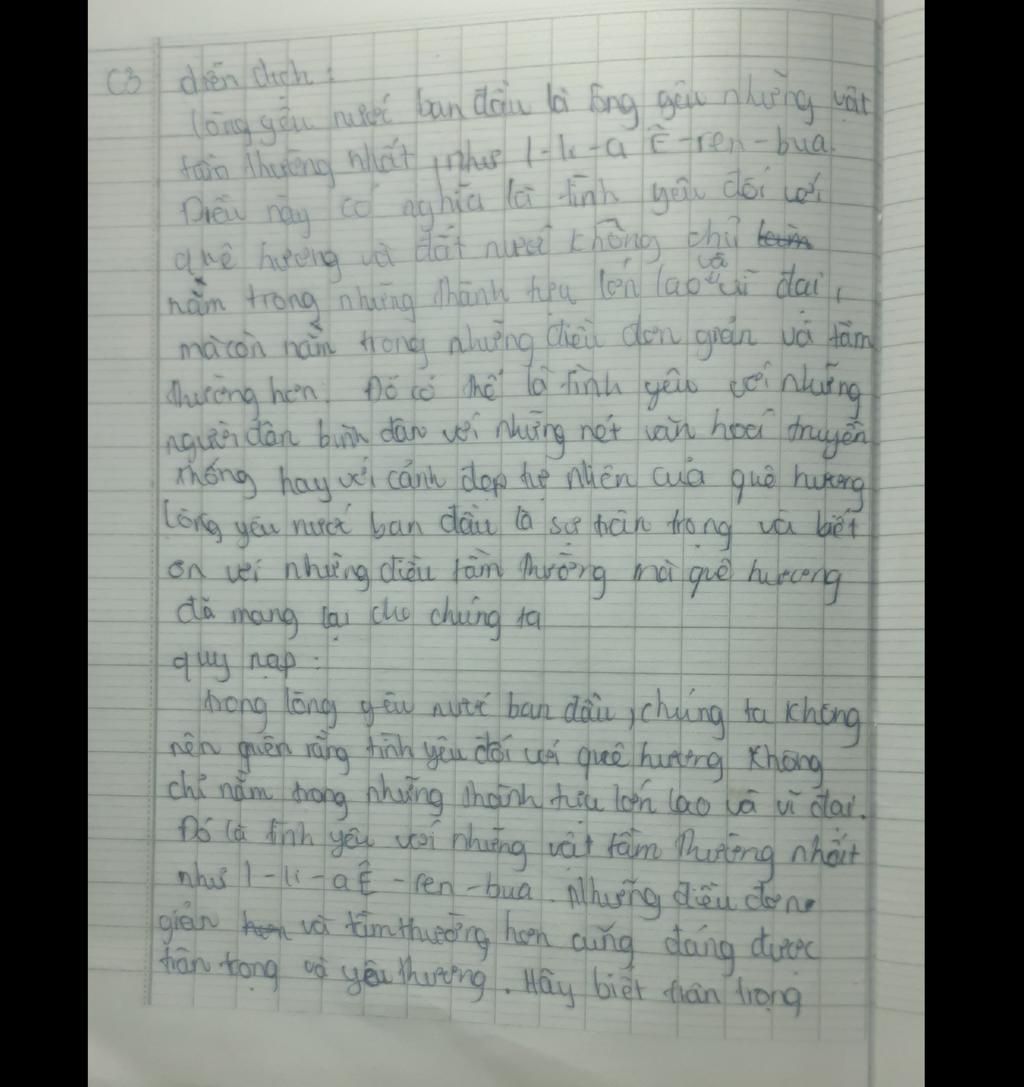 C3 diễn dịch:
lòng yêu nước ban đầu là lòng yêu những vật
tầm thường nhất, như I-li-a Ê-ren-bua
Điều này có nghĩa là tình yêu đối với
quê hương và đất nước không chỉ
nằm trong những thành tựu lớn lao và vĩ đại,
mà còn nằm trong những điều đơn giản và tầm
thường hơn. Đó có thể là tình yêu với những
người dân bình dân với những nét văn hoá truyền
thống hay với cảnh đẹp tự nhiên của quê hương
lòng yêu nước ban đầu là sự trân trọng và biết
ơn với những điều tầm thường mà quê hương
đã mang lại cho chúng ta
quy nạp:
trong lòng yêu nước ban đầu, chúng ta không
nên quên rằng tình yêu đối với quê hương không
chỉ nằm trong những thành tựu lớn lao và vĩ đại.
Đó là tình yêu với những vật tầm thường nhất
như I-li-a Ê-ren-bua. Những điều đơn
giản và tầm thường hơn cũng đáng được
trân trọng và yêu thương. Hãy biết trân trọng